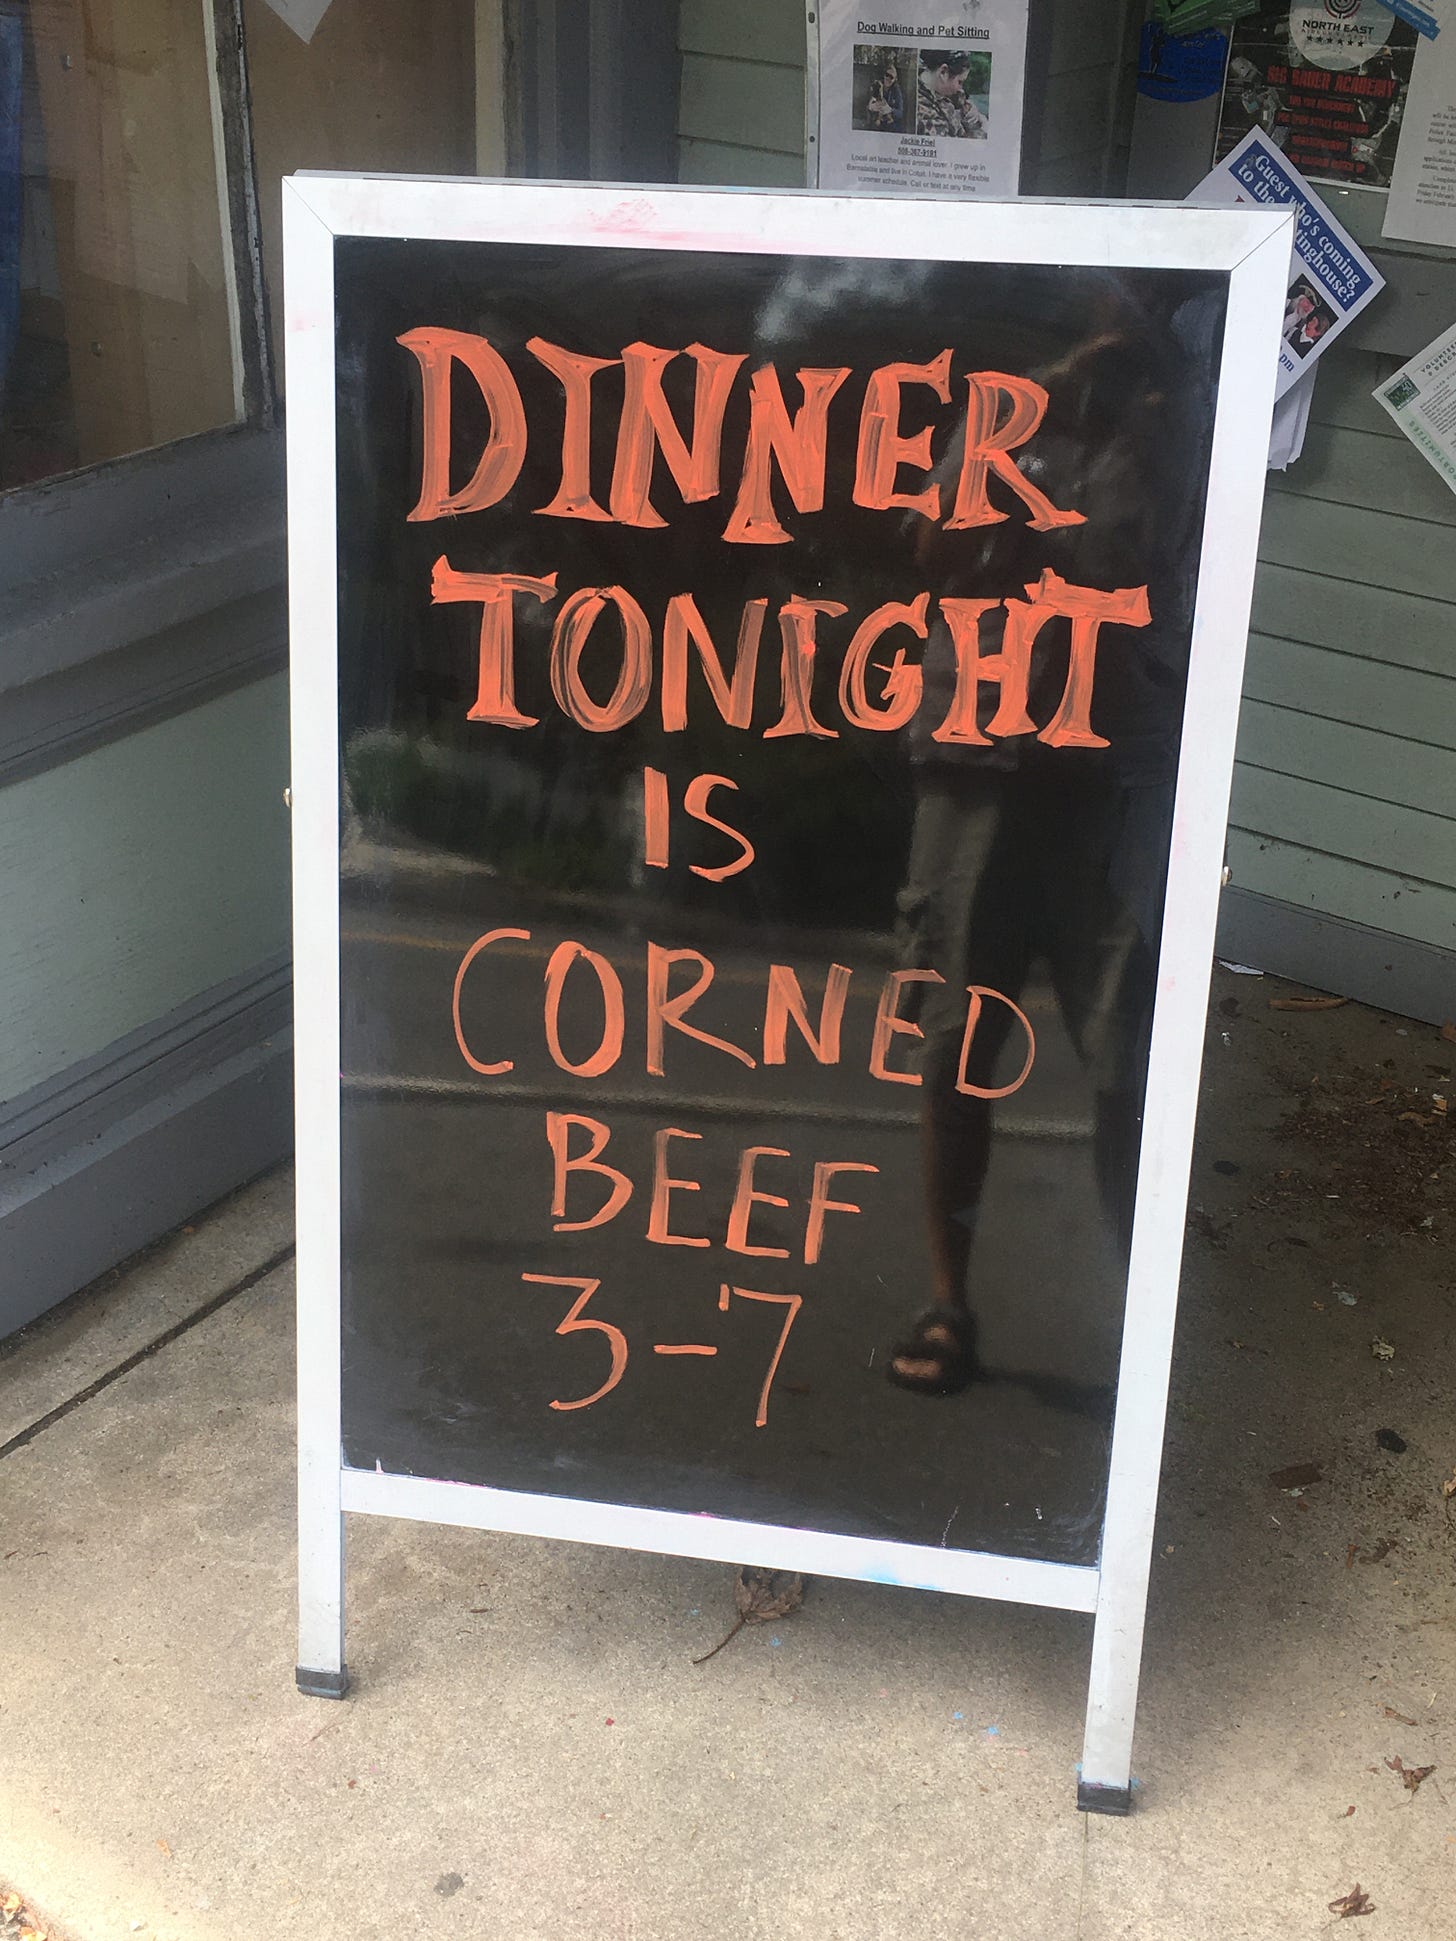 Dog Walking and Pet Sitting
Jackie Friel
508-367-9191
Local art teacher and animal lover. I grew up in
Barnstable and live in Cotuit. I have a very flexible
summer schedule. Call or text at any time
NORTH EAST
ACADEMY
Guest who's coming
to the
tinghouse?
pm
DINNER
TONIGHT
IS
CORNED
BEEF
3-7